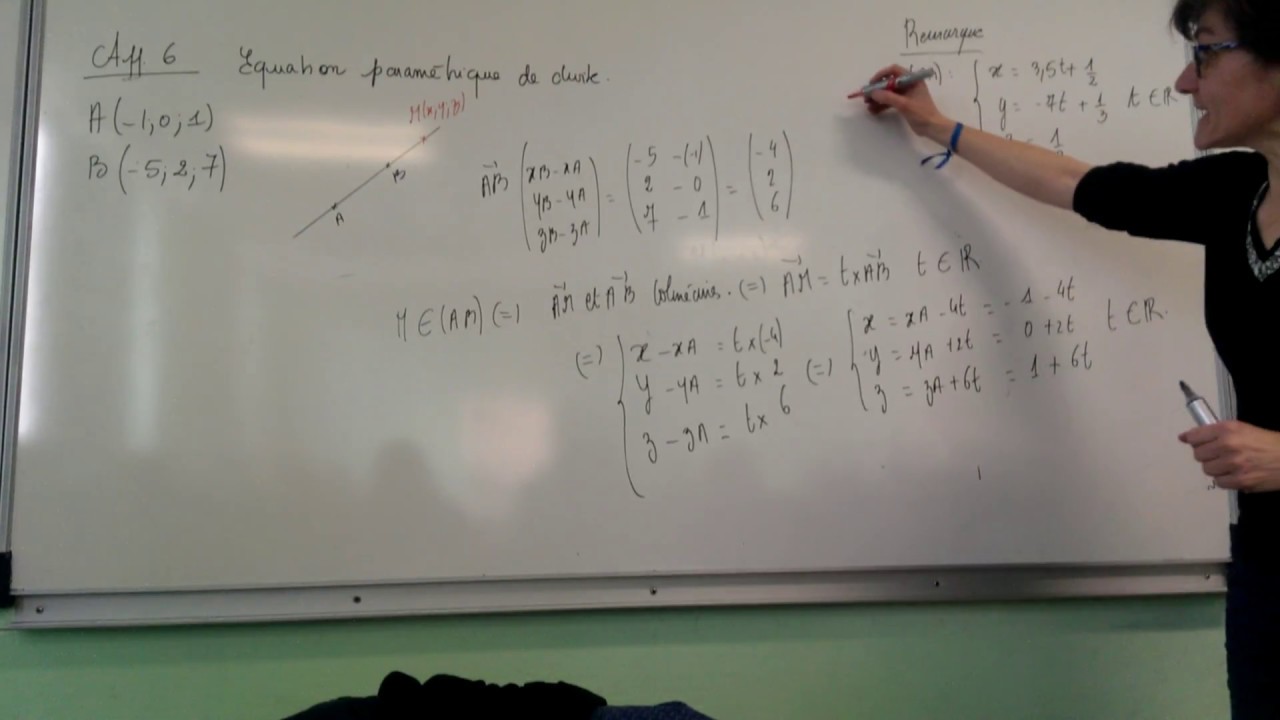 Aff 6 Equation paramétrique de droite.
A(-1; 0; 1)
B(-5; 2; 7)
M(x, y, z)
A
B
AB→ (xB-xA yB-yA zB-zA) = (-5 -(-1) 2 - 0 7 - 1) = (-4 2 6)
M ∈ (AB) (=) AM→ et AB→ colinéaires. (=) AM→ = t×AB→ t ∈ ℝ
(=) { x - xA = t×(-4)
y - yA = t× 2
z - zA = t× 6
(=) { x = xA - 4t = -1 - 4t
y = yA + 2t = 0 + 2t t ∈ ℝ.
z = zA + 6t = 1 + 6t
Remarque
: { x = 3,5t + 1/2
y = -7t + 1/3 t ∈ ℝ